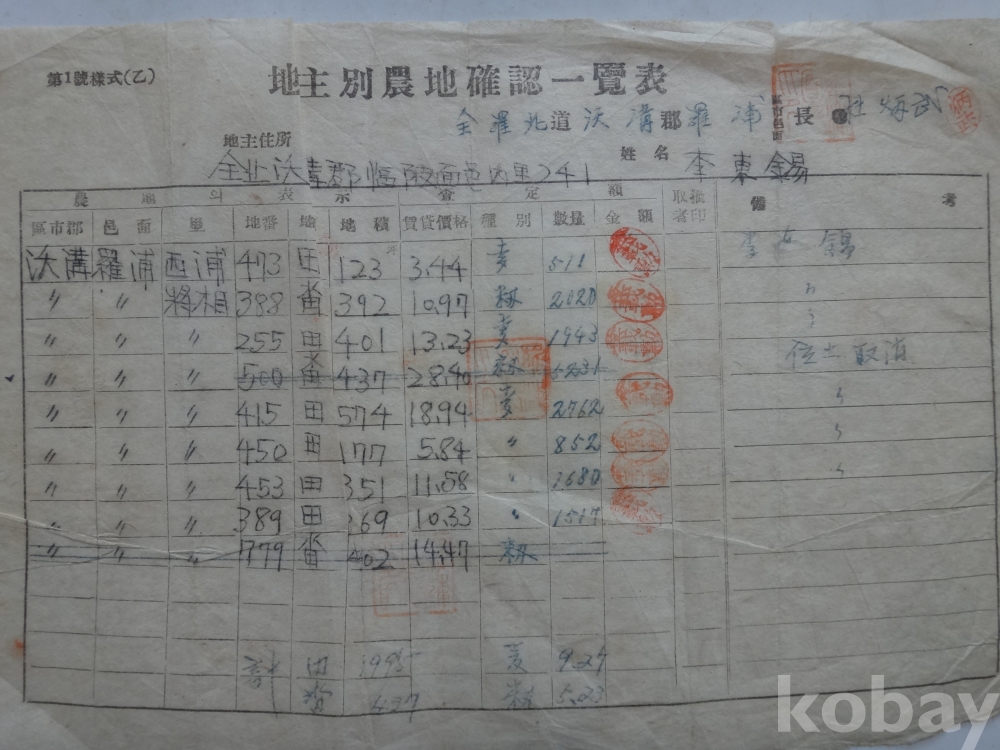 第1號樣式(乙)
地主別農地確認一覽表
全羅北道 沃溝郡 羅浦 區市邑面 長 杜炳武
地主住所 姓名
全北沃 郡臨陂面邑內里241 李東錫
農地의表示 査定額 取扱者印 備考
區市郡 邑面 里 地番 地 地積 賃貸價格 種別 數量 金額
沃溝 羅浦 西浦 473 田 123 3.44 麥 511 李東錫
〃 〃 將相 388 畓 392 10.97 2020 〃
〃 〃 〃 255 田 401 13.23 麥 1943
〃 〃 〃 500 畓 437 28.40 5231 位土取消
〃 〃 〃 415 田 574 18.94 麥 2762
〃 〃 〃 450 田 177 5.84 〃 852
〃 〃 〃 453 田 351 11.58 〃 1680
〃 〃 〃 389 田 369 10.33 〃 1517
〃 〃 〃 779 畓 402 14.47
計 田 1995 麥 9.27
畓 437 5.23
kobay